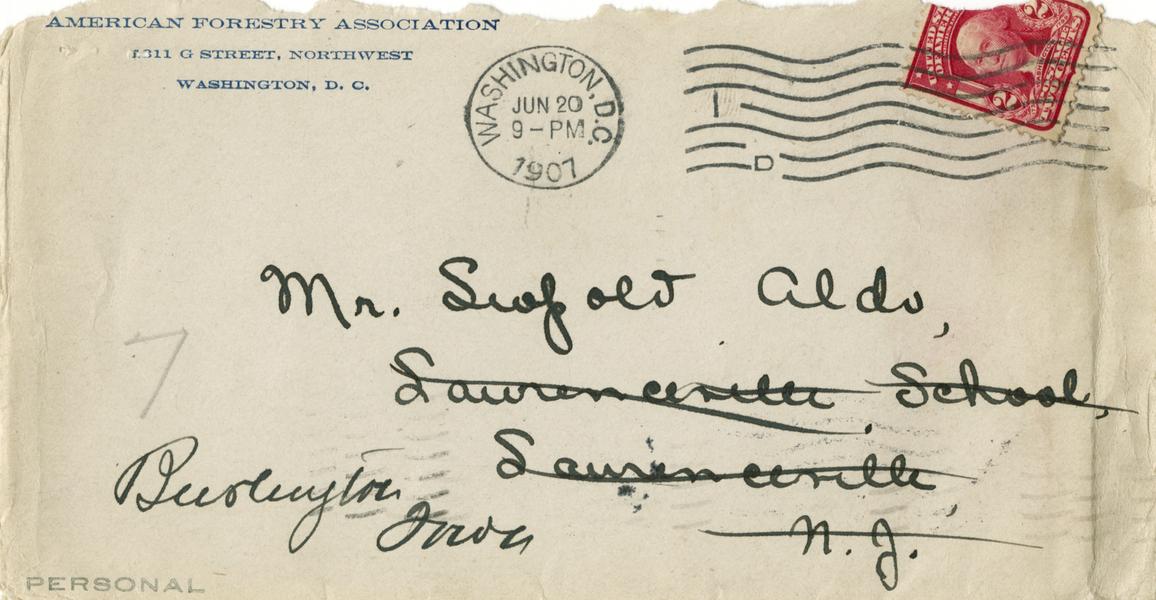 AMERICAN FORESTRY ASSOCIATION
1311 G STREET, NORTHWEST
WASHINGTON, D. C.
WASHINGTON, D.C.
JUN 20
9-PM
1907
D
2
2
Mr. Leopold Aldo,
Lawrenceville School,
Lawrenceville,
N. J.
7
Burlington
Iowa
PERSONAL